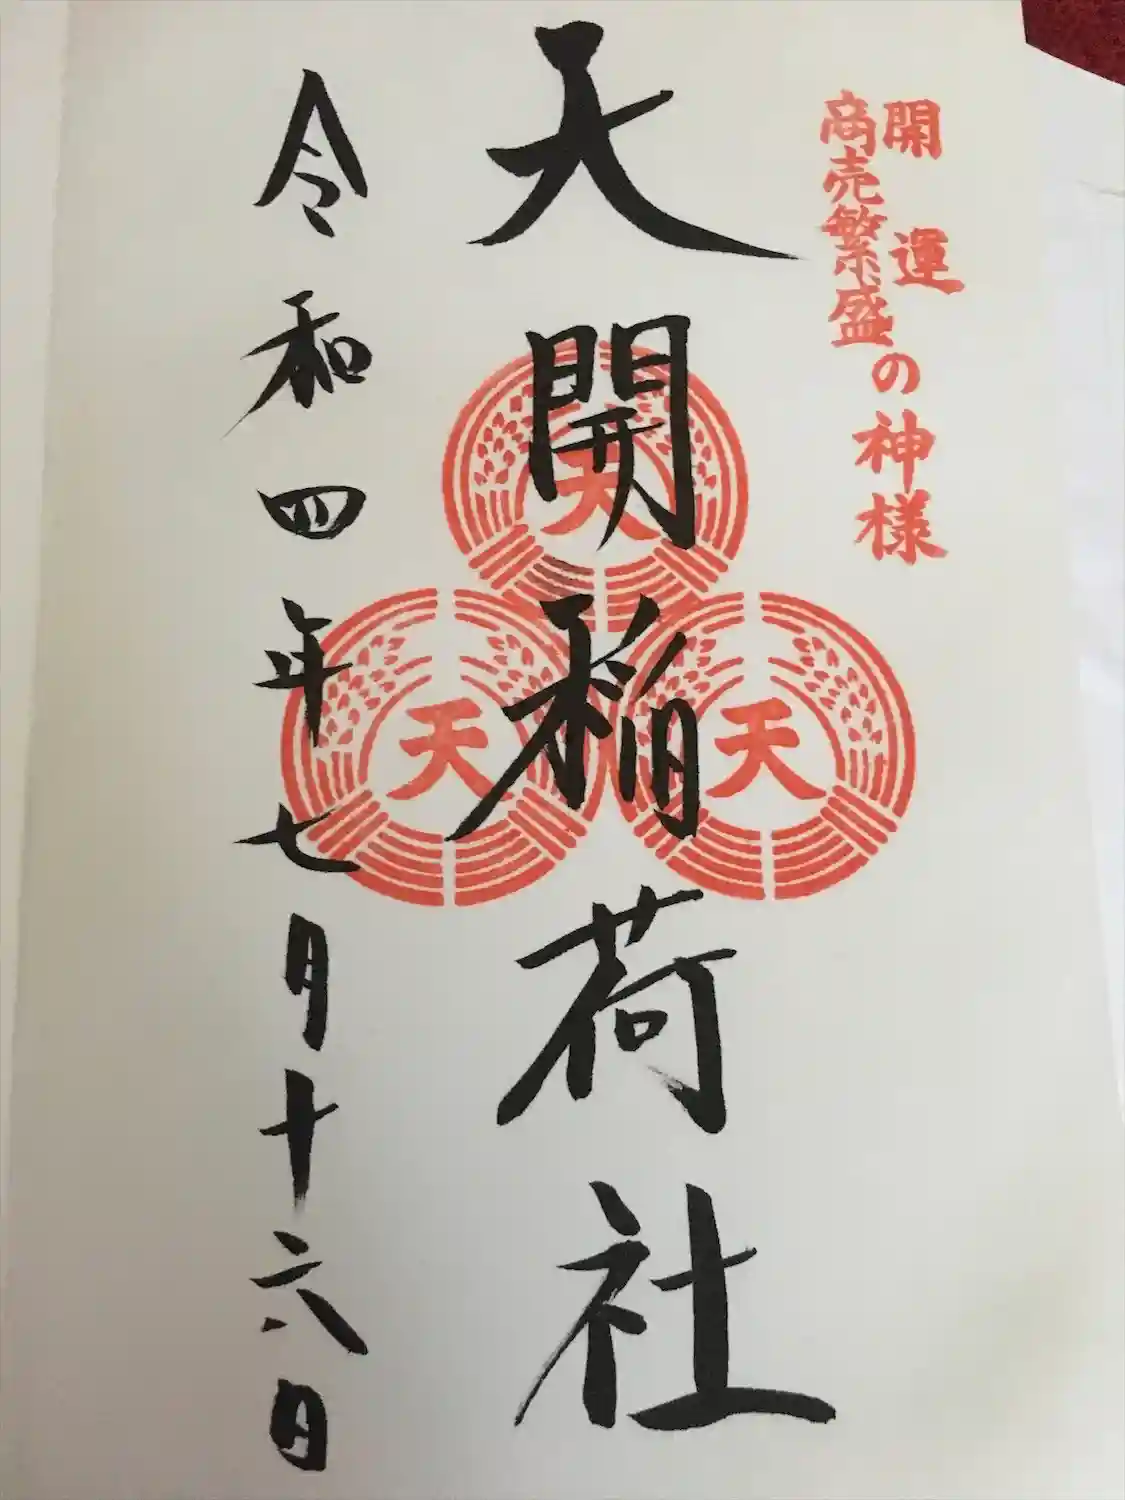 開運
商売繁盛
の神様
天開稲荷社
天
天
天
令和四年七月十六日